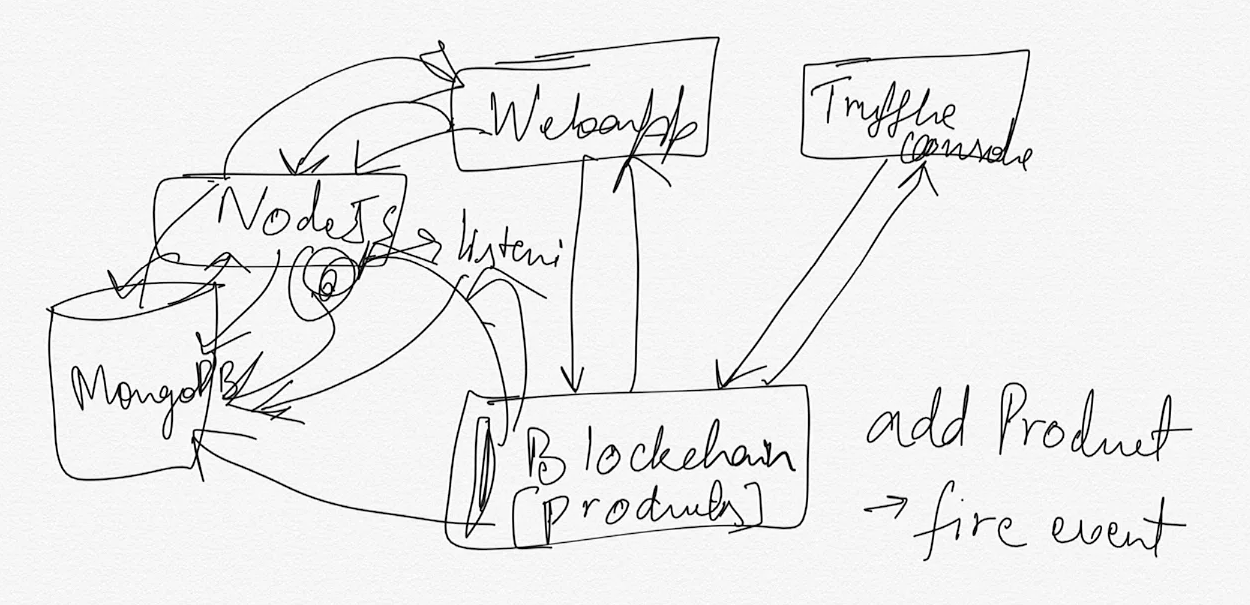 WebappApp
Truffle
console
NodeJS
listeni
MongoDB
Blockchain
[products]
add Product
→ fire event